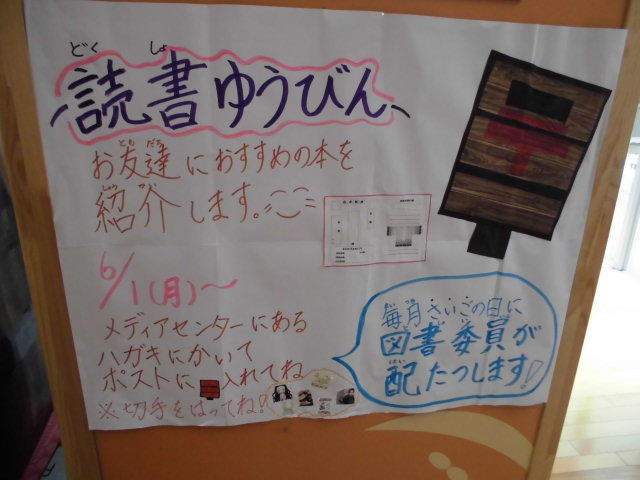 どくしょ
読書ゆうびん
ともだち
お友達におすすめの本を
しょうかい
紹介します。
6/1(月)～
メディアセンターにある
ハガキにかいて
ポストに入れてね
※切手をはってね!
毎月さいごの日に
図書委員が
配たつします!
〒